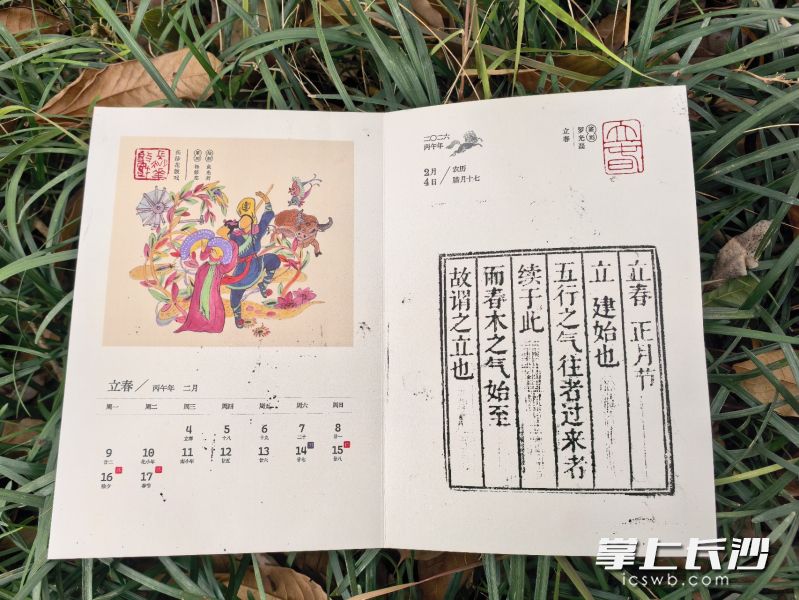 长沙花鼓戏
立春／ 丙午年 二月
周一 周二 周三 周四 周五 周六 周日
4 5 6 7 8
立春 十八 十九 二十 廿一
9 10 11 12 13 14 15
廿二 北小年 南小年 廿五 廿六 廿七 廿八
16 17
除夕 春节
二〇二六
丙午年
2月
4日
农历
腊月十七
篆刻
罗光磊
立春
立春 正月节
立 建始也
五行之气往者过来者
续于此
而春木之气始至
故谓之立也
掌上长沙
icswb.com